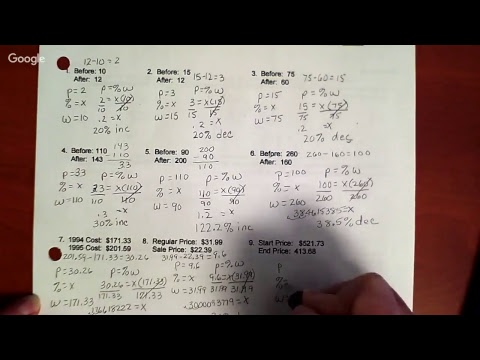 Google
12-10=2
1. Before: 10
After: 12
P=2 P=%W
%=X 2=X(10)
10 10
W=10 .2=X
20% inc
2. Before: 15 15-12=3
After: 12
P=3 P=%W
%=X 3=X(15)
15 15
W=15 .2=X
20% dec
3. Before: 75 75-60=15
After: 60
P=15 P=%W
%=X 15=X(75)
75 75
W=75 .2=X
20% dec
4. Before: 110 143
After: 143 -110
33
P=33 P=%W
%=X 33=X(110)
W=110 110 110
.3=X
30% inc
5. Before: 90 200
After: 200 -90
110
P=110 P=%W
%=X 110=X(90)
90 90
W=90 1.2=X
122.2% inc
6. Before: 260 260-160=100
After: 160
P=100 P=%W
%=X 100=X(260)
W=260 260 260
.384615385=X
38.5% dec
7. 1994 Cost: $171.33
1995 Cost: $201.59
201.59-171.33=30.26
P=30.26 P=%W
%=X 30.26=X(171.33)
171.33 171.33
W=171.33
=X
8. Regular Price: $31.99
Sale Price: $22.39
31.99-22.39=9.6
P=9.6 P=%W
%=X 9.6=X(31.99)
W=31.99 31.99 31.99
=X
9. Start Price: $521.73
End Price: 413.68
P
%=
W